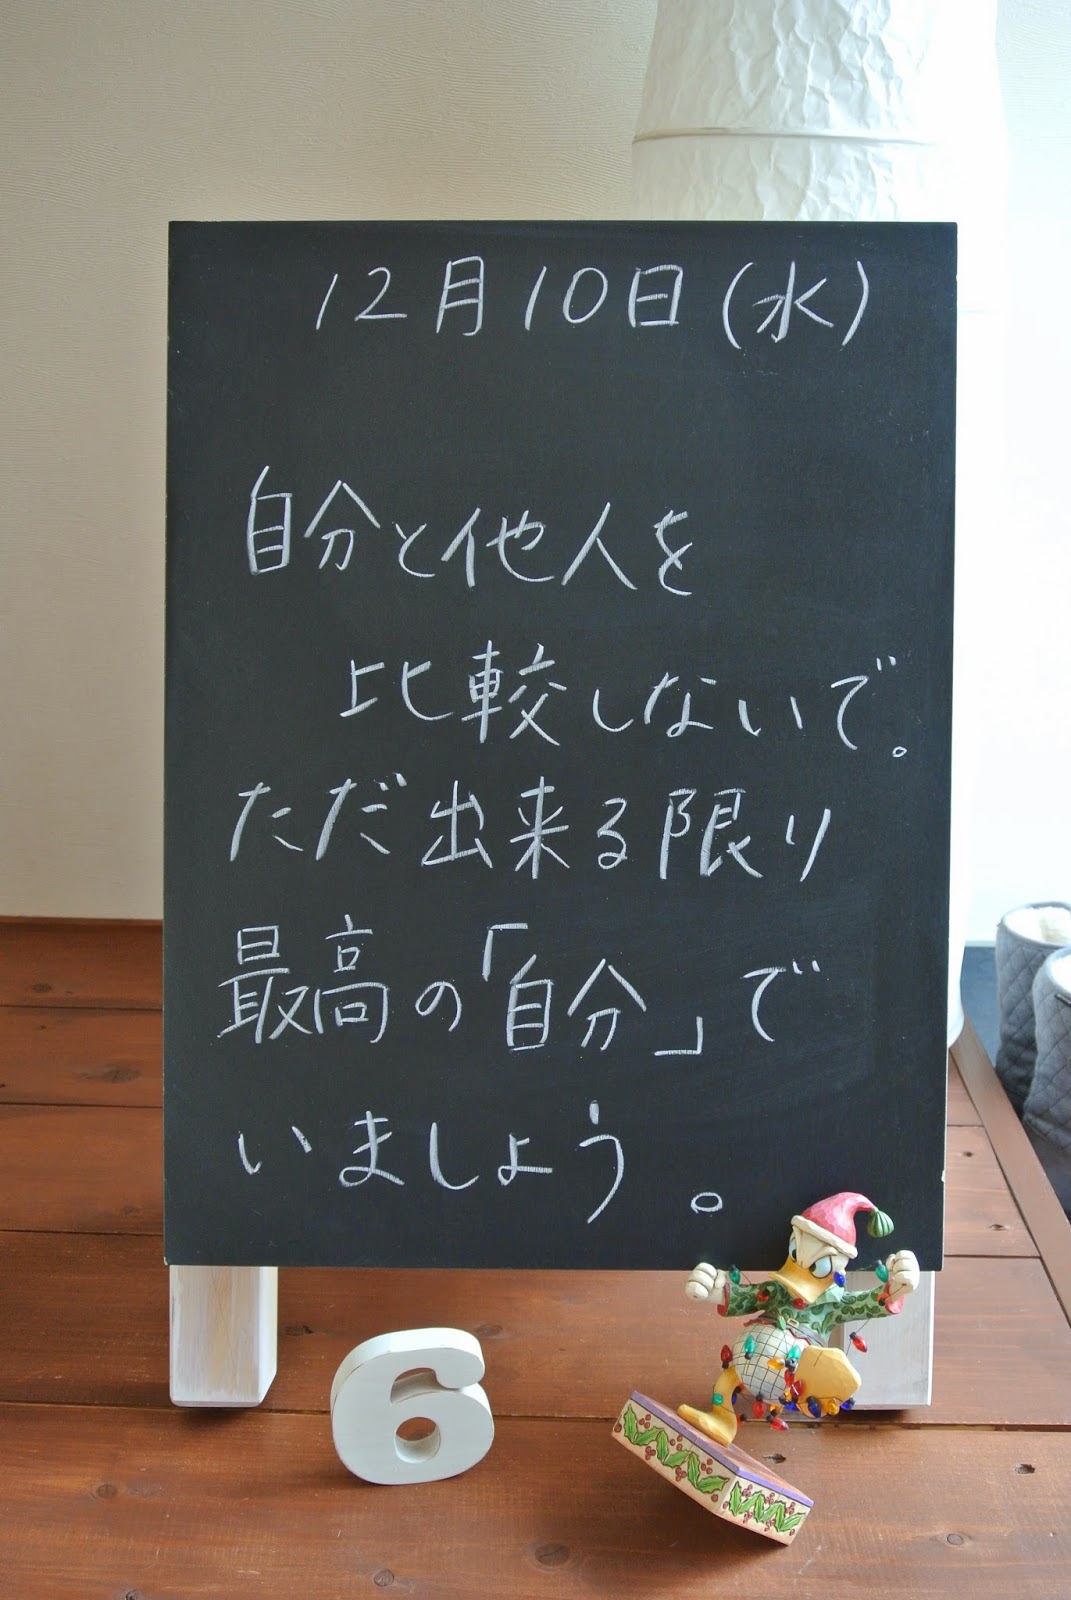 12月10日(水)
自分と他人を
比較しないで。
ただ出来る限り
最高の「自分」で
いましょう。
6